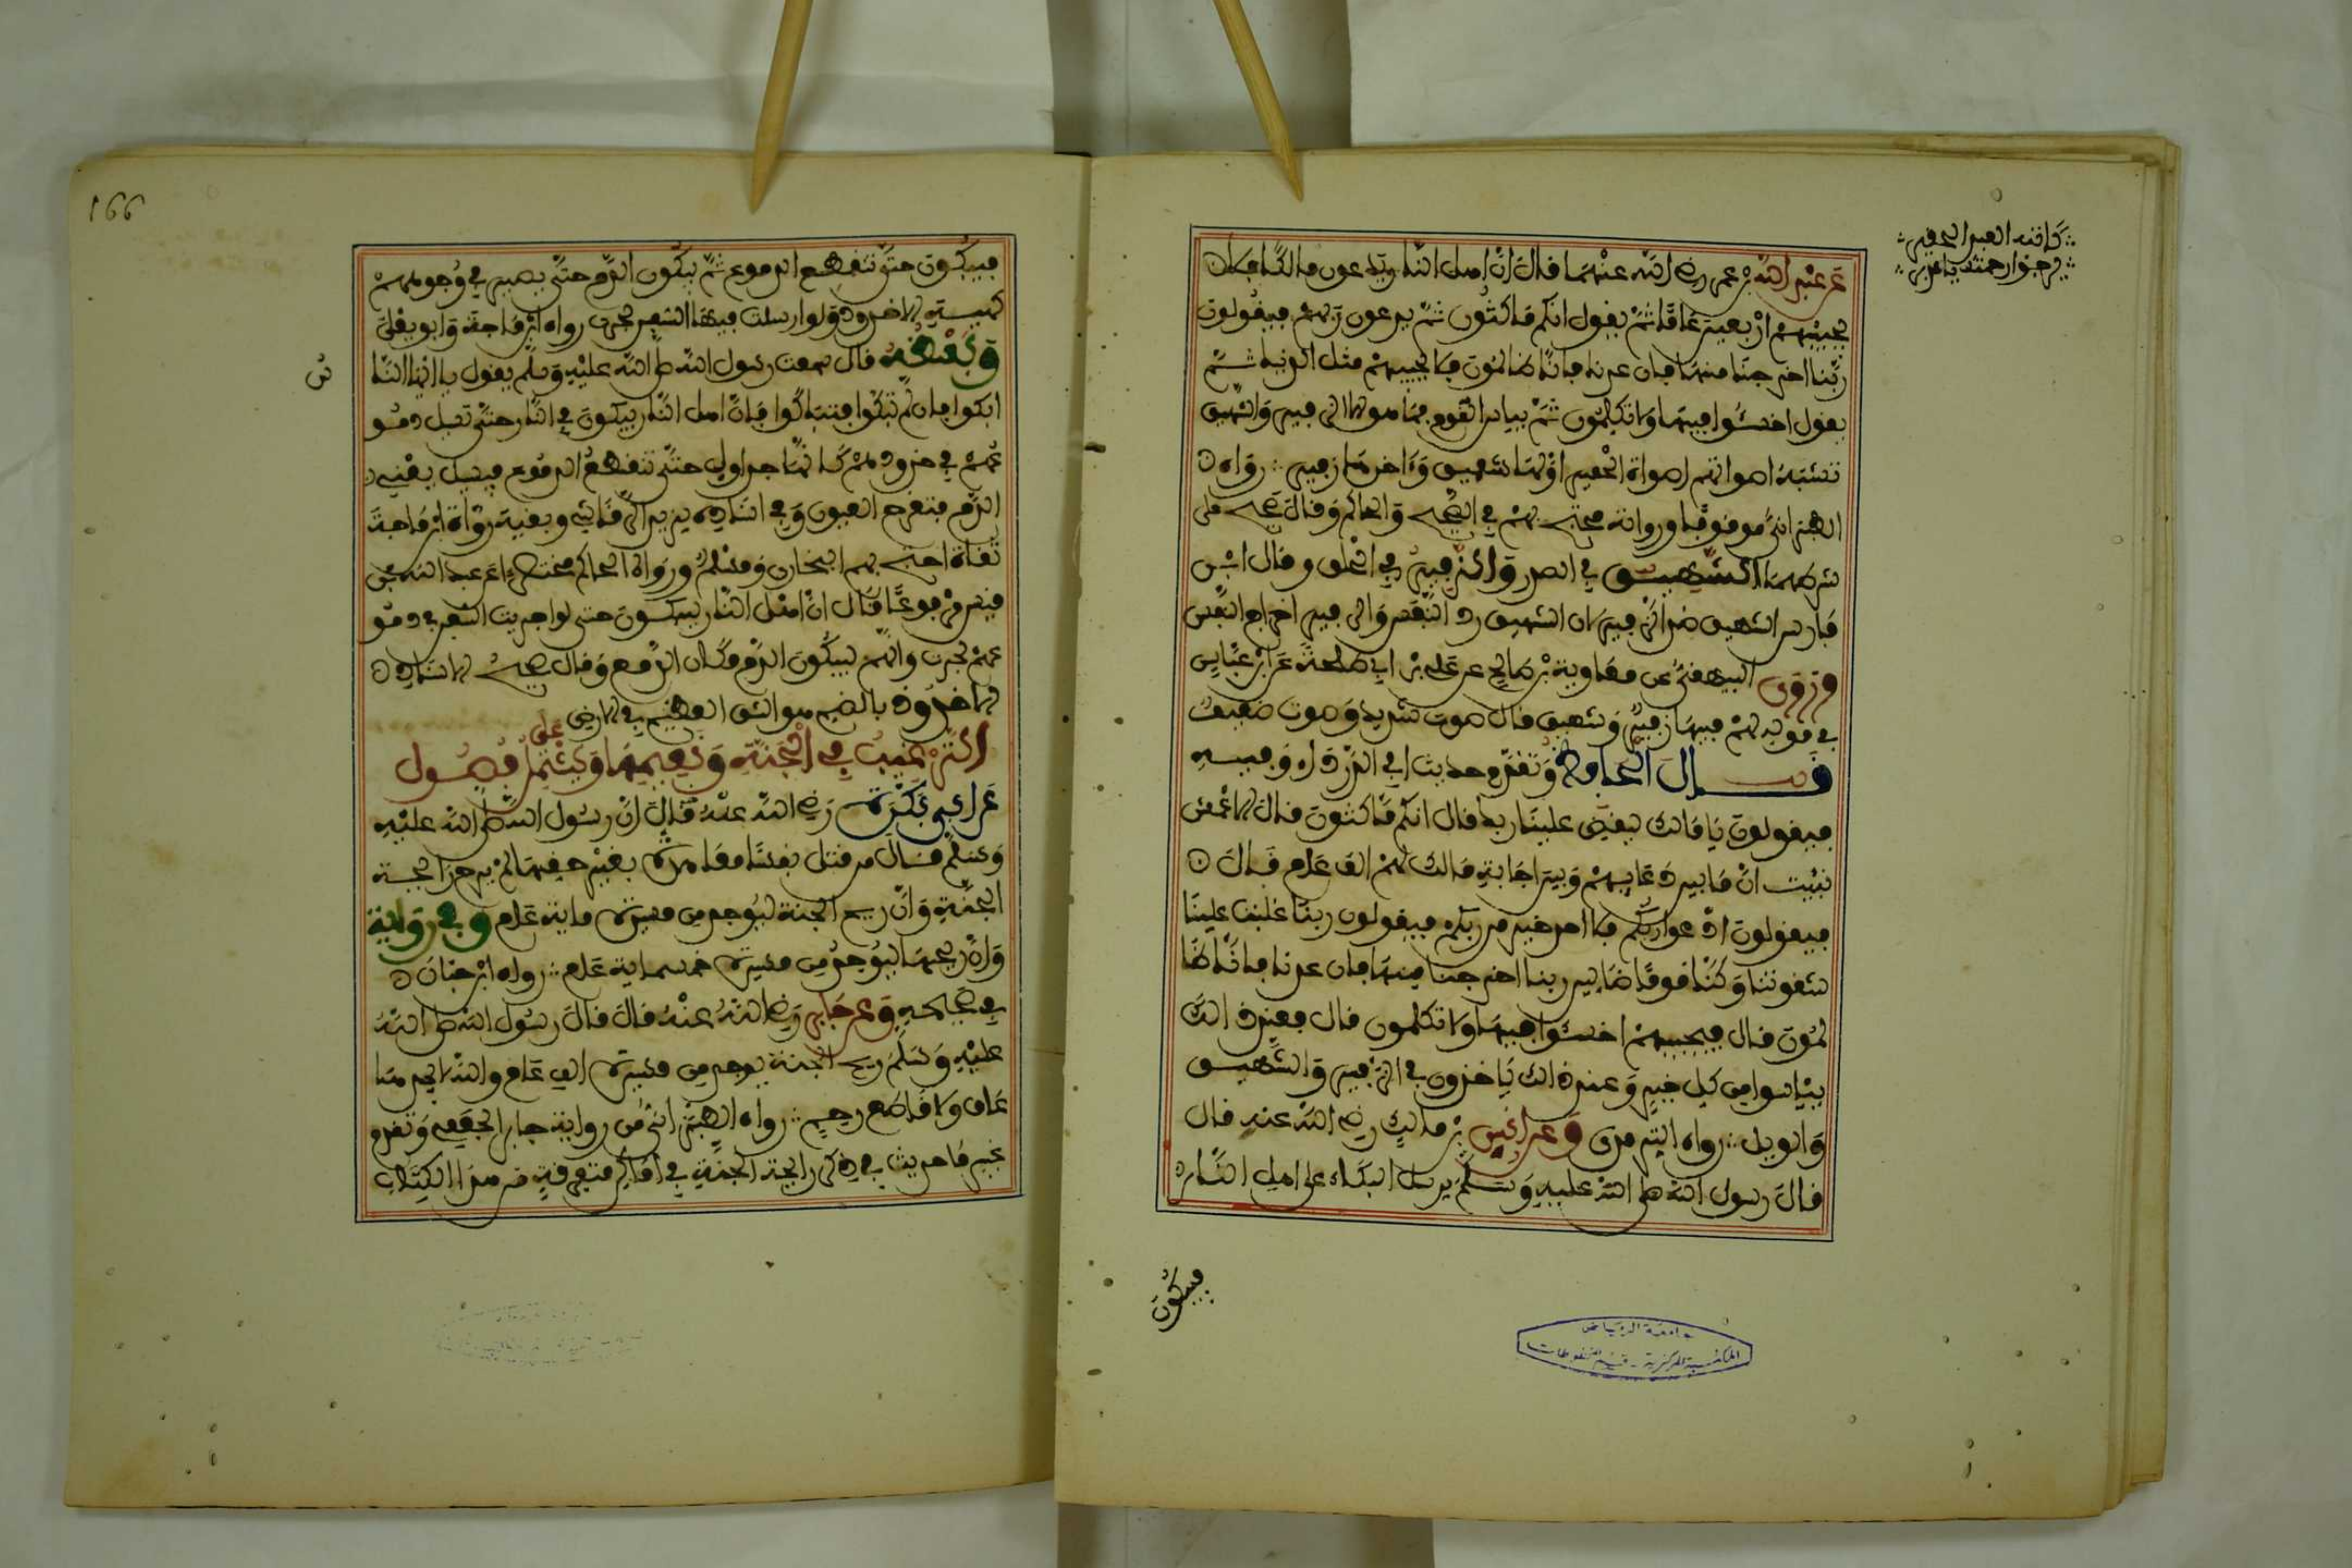 عن عبد الله بن عمر رضي الله عنهما قال إن أهل النار يدعون مالكا فلا
يجيبهم أربعين عاما ثم يقول إنكم ماكثون ثم يدعون ربهم فيقولون
ربنا أخرجنا منها فإن عدنا فإنا ظالمون فلا يجيبهم مثل الدنيا ثم
يقول اخسئوا فيها ولا تكلمون ثم ييأس القوم فما هو إلا الزفير والشهيق
تشبه أصواتهم أصوات الحمير أولها شهيق وآخرها زفير رواه
الطبراني موقوفا ورواته محتج بهم في الصحيح والحاكم وقال صحيح على
شرطهما الشهيق في الصدر والزفير في الحلق وقال ابن
فارس الشهيق ضد الزفير لأن الشهيق رد النفس والزفير إخراج النفس
وروى البيهقي عن معاوية بن صالح عن علي بن أبي طلحة عن ابن عباس
في قوله لهم فيها زفير وشهيق قال صوت شديد وصوت ضعيف
قال الحافظ وتقدم حديث أبي الدرداء وفيه
فيقولون يا مالك ليقض علينا ربك قال إنكم ماكثون قال الأعمش
نبئت أن ما بين دعائهم وبين إجابة مالك لهم ألف عام قال
فيقولون ادعوا ربكم فلا أحد خير من ربكم فيقولون ربنا غلبت علينا
شقوتنا وكنا قوما ضالين ربنا أخرجنا منها فإن عدنا فإنا ظا
لمون قال فيجيبهم اخسئوا فيها ولا تكلمون قال فعند ذلك
ييئسوا من كل خير وعند ذلك يأخذون في الزفير والشهيق
والويل رواه الترمذي وعن أنس بن مالك رضي الله عنه قال
قال رسول الله صلى الله عليه وسلم يرسل البكاء على أهل النار
فيبكون
جامعة الرياض
المكتبة المركزية - قسم المخطوطات
166
فيبكون حتى تنقطع الدموع ثم يبكون الدم حتى يصير في وجوههم
كهيئة الأخدود ولو أرسلت فيها السفن لجرت رواه ابن ماجة وأبو يعلى
ولفظه قال سمعت رسول الله صلى الله عليه وسلم يقول يا أيها الناس
ابكوا فإن لم تبكوا فتباكوا فإن أهل النار يبكون في النار حتى تسيل دمو
عهم في خدودهم كأنها جداول حتى تنقطع الدموع فيسيل يعني
الدم فتقرح العيون وفي إسناده يزيد الرقاشي وبقية رواة ابن ماجة
ثقات احتج بهم البخاري ومسلم ورواه الحاكم مختصرا عن عبد الله بن
قيس مرفوعا قال إن أهل النار ليبكون حتى لو أجريت السفن في دمو
عهم لجرت وإنهم ليبكون الدم مكان الدمع وقال صحيح الإسناد
الأخدود بالضم هو الشق العظيم في الأرض
الترغيب في الجنة ونعيمها ويشتمل على فصول
عن أبي بكرة رضي الله عنه قال إن رسول الله صلى الله عليه
وسلم قال من قتل نفسا معاهدة بغير حقها لم يرح رائحة
الجنة وإن ريح الجنة ليوجد من مسيرة مائة عام وفي رواية
وإن ريحها ليوجد من مسيرة خمسمائة عام رواه ابن حبان
في صحيحه وعن جابر رضي الله عنه قال قال رسول الله صلى الله
عليه وسلم ريح الجنة يوجد من مسيرة ألف عام والله لا يجدها
عاق ولا قاطع رحم رواه الطبراني من رواية جابر الجعفي وتقدم
غير ما حديث في ذكر رائحة الجنة في أماكن متفرقة من هذا الكتاب